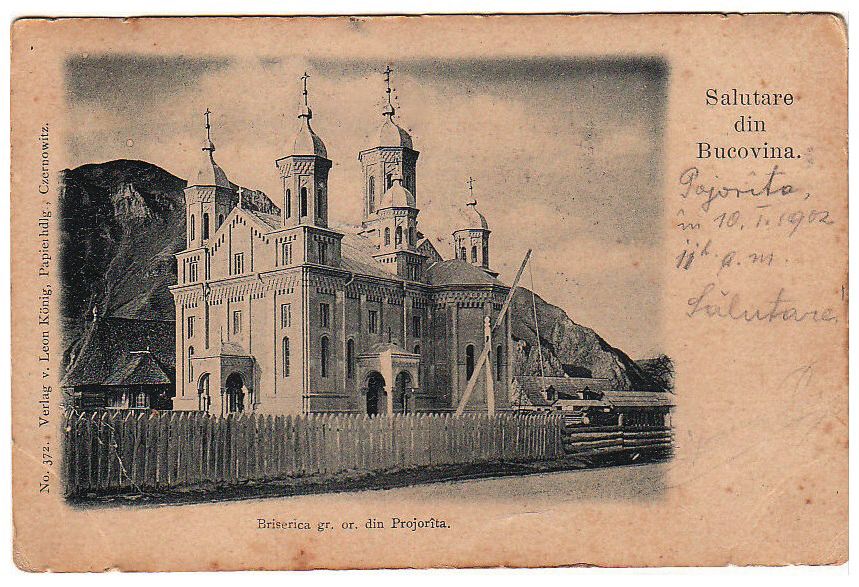 Salutare
din
Bucovina.
Pojorîta,
în 10. I. 1902
11h a. m.
Salutare!
No. 372. Verlag v. Leon König, Papierhdlg., Czernowitz.
Briserica gr. or. din Projorîta.